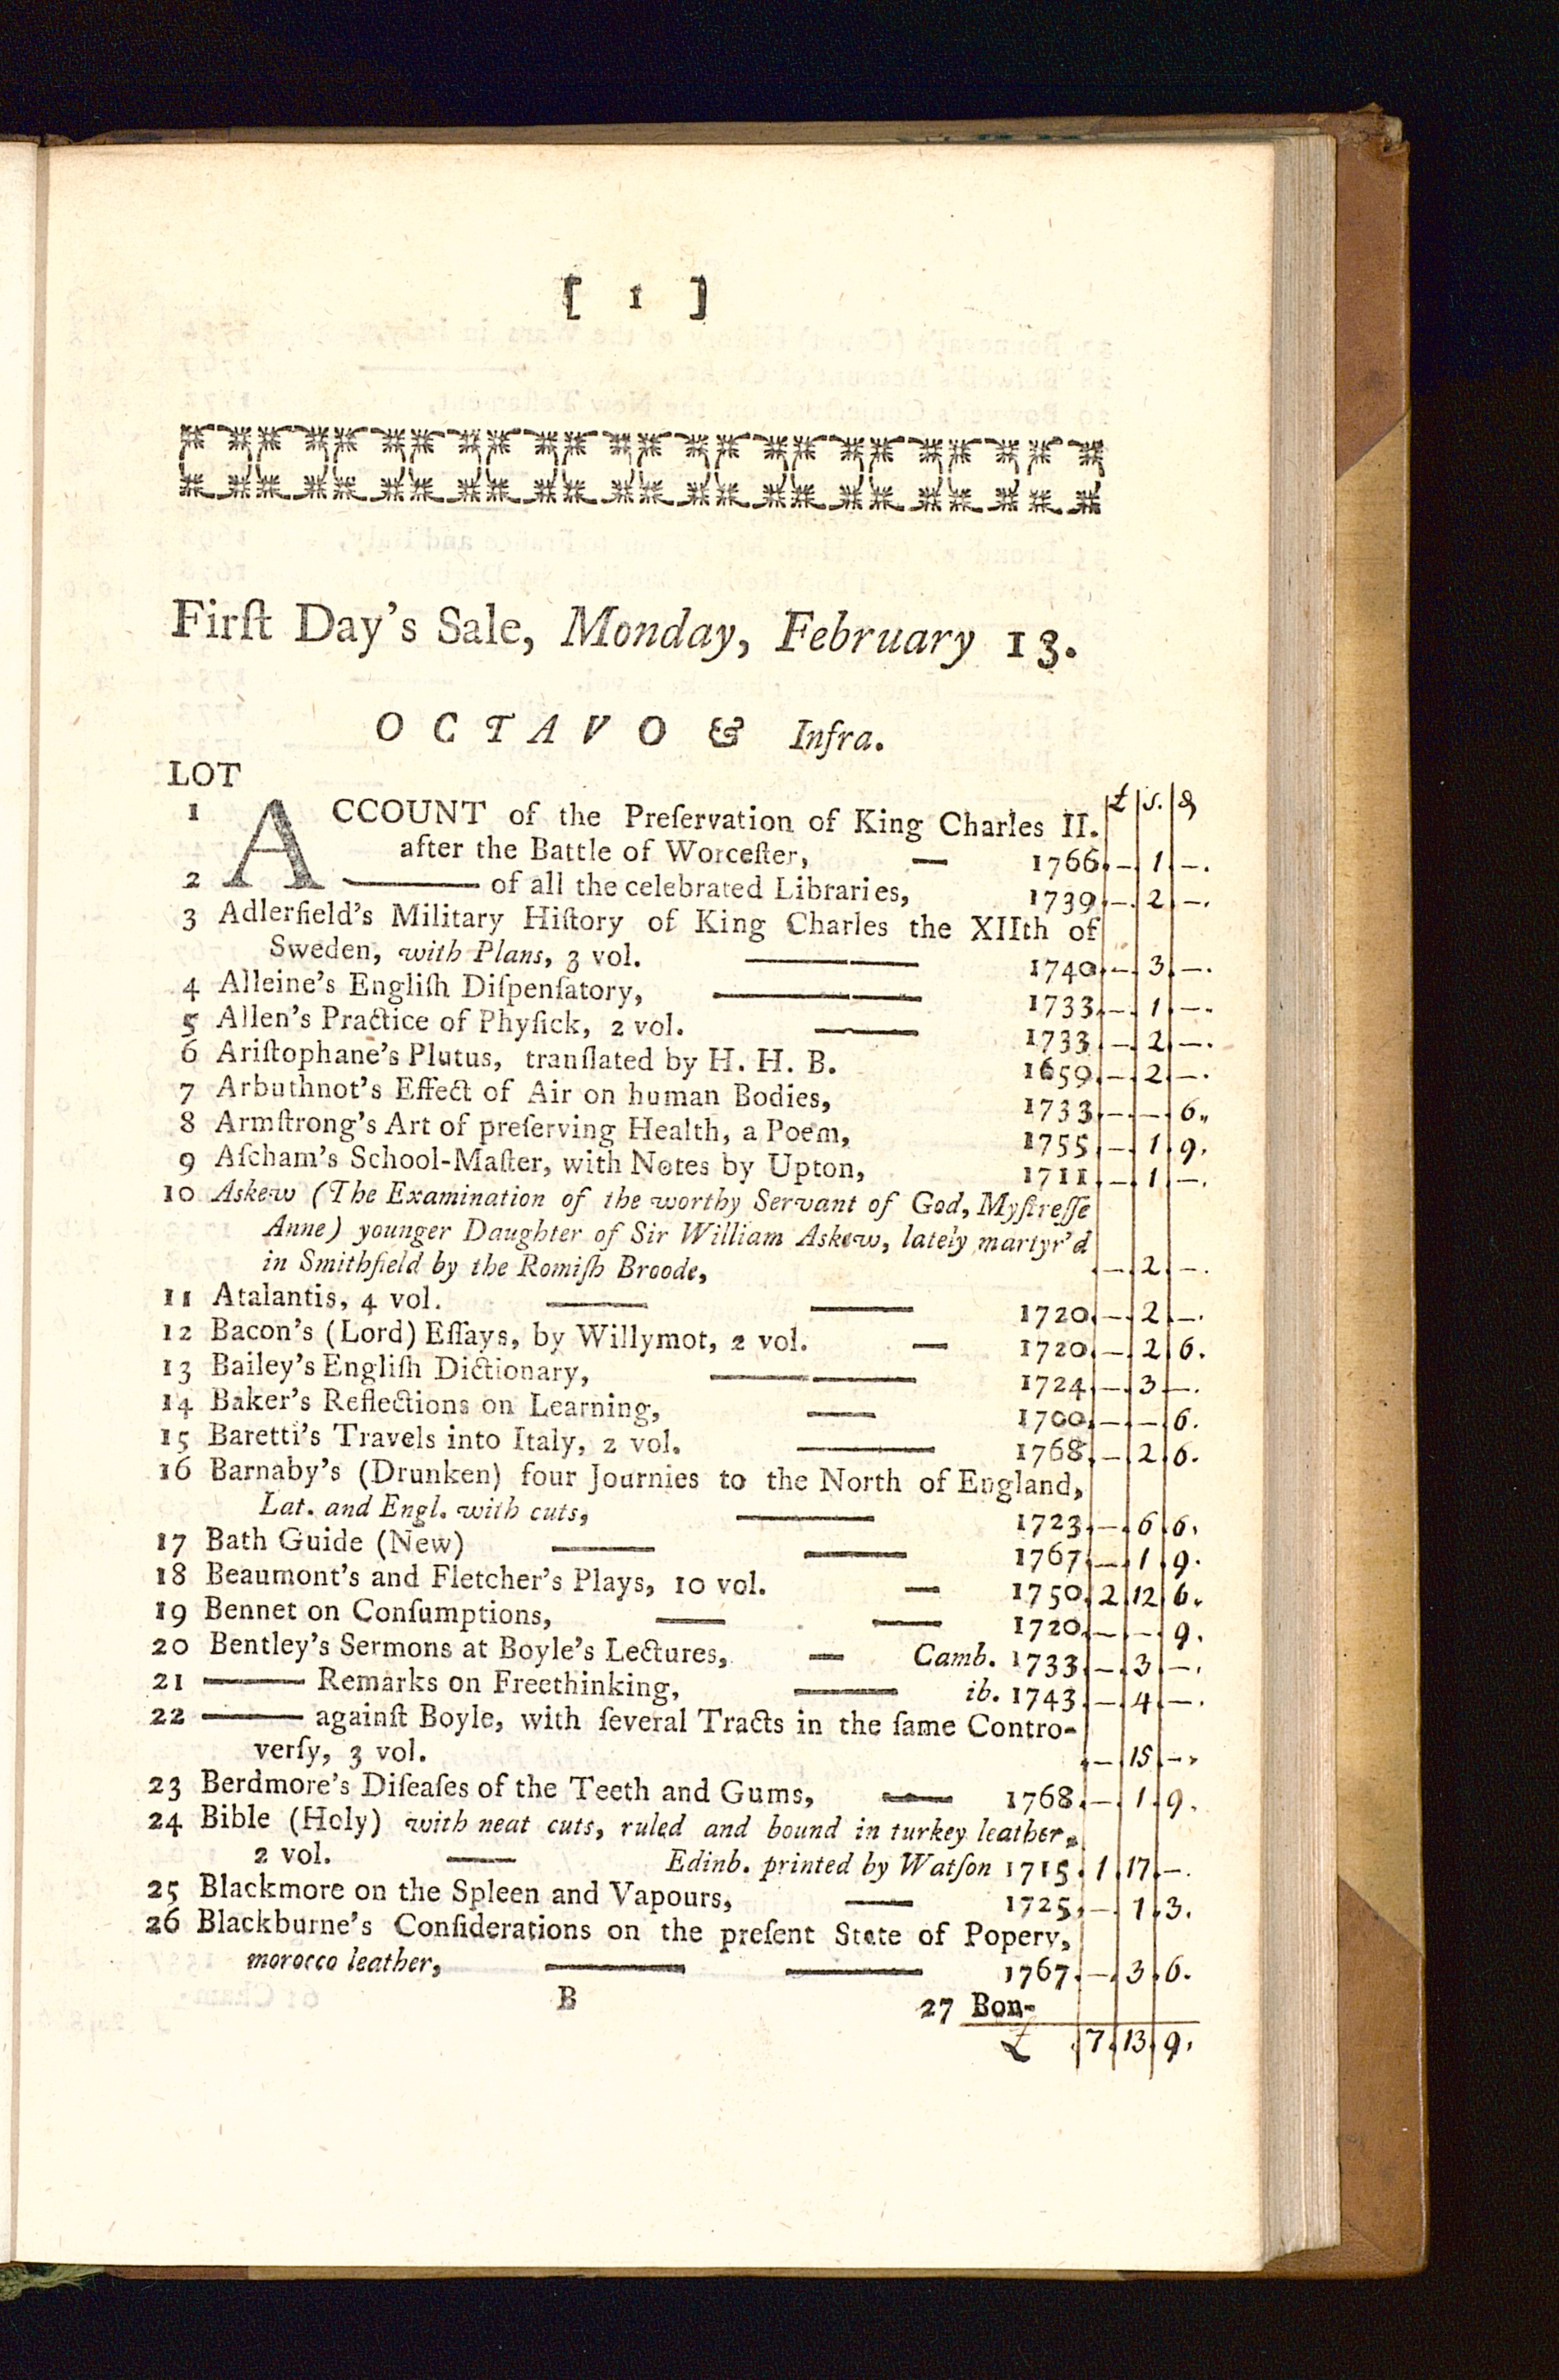 [ 1 ]
Firſt Day's Sale, Monday, February 13.
OCTAVO & Infra.
LOT
£ s. d
1 ACCOUNT of the Preſervation of King Charles II.
after the Battle of Worceſter, — 1766 — 1 —.
2 ——— of all the celebrated Libraries, 1739 — 2 —.
3 Adlerfield's Military Hiſtory of King Charles the XIIth of
Sweden, with Plans, 3 vol. —— 1740 — 3 —.
4 Alleine's Engliſh Diſpenſatory, —— 1733 — 1 —.
5 Allen's Practice of Phyſick, 2 vol. —— 1733 — 2 —.
6 Ariſtophane's Plutus, tranſlated by H. H. B. 1659 — 2 —.
7 Arbuthnot's Effect of Air on human Bodies, 1733 — — 6.
8 Armſtrong's Art of preſerving Health, a Poem, 1755 — 1 9.
9 Aſcham's School-Maſter, with Notes by Upton, 1711 — 1 —.
10 Askew (The Examination of the worthy Servant of God, Myſtreſſe
Anne) younger Daughter of Sir William Askew, lately martyr'd
in Smithfield by the Romiſh Broode, — 2 —.
11 Atalantis, 4 vol. —— —— 1720 — 2 —.
12 Bacon's (Lord) Eſſays, by Willymot, 2 vol. — 1720 — 2 6.
13 Bailey's Engliſh Dictionary, —— 1724 — 3 —.
14 Baker's Reflections on Learning, — 1700 — — 6.
15 Baretti's Travels into Italy, 2 vol. —— 1768 — 2 6.
16 Barnaby's (Drunken) four Journies to the North of England,
Lat. and Engl. with cuts, —— 1723 — 6 6.
17 Bath Guide (New) —— —— 1767 — 1 9.
18 Beaumont's and Fletcher's Plays, 10 vol. — 1750 2 12 6.
19 Bennet on Conſumptions, — — 1720 — — 9.
20 Bentley's Sermons at Boyle's Lectures, — Camb. 1733 — 3 —.
21 ——— Remarks on Freethinking, —— ib. 1743 — 4 —.
22 ——— againſt Boyle, with ſeveral Tracts in the ſame Contro-
verſy, 3 vol. — 15 —.
23 Berdmore's Diſeaſes of the Teeth and Gums, — 1768 — 1 9.
24 Bible (Holy) with neat cuts, ruled and bound in turkey leather,
2 vol. — Edinb. printed by Watſon 1715 1 17 —.
25 Blackmore on the Spleen and Vapours, — 1725 — 1 3.
26 Blackburne's Conſiderations on the preſent State of Popery,
morocco leather, —— —— 1767 — 3 6.
B 27 Bon-
£ 7 13 9.